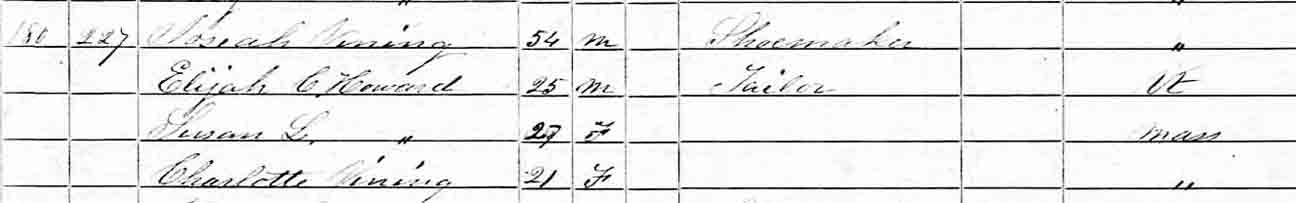 "
180 227 Josiah Vining 54 m Shoemaker "
Elijah C. Howard 25 m Tailor Vt
Susan L. " 27 F mass
Charlotte Vining 21 F "